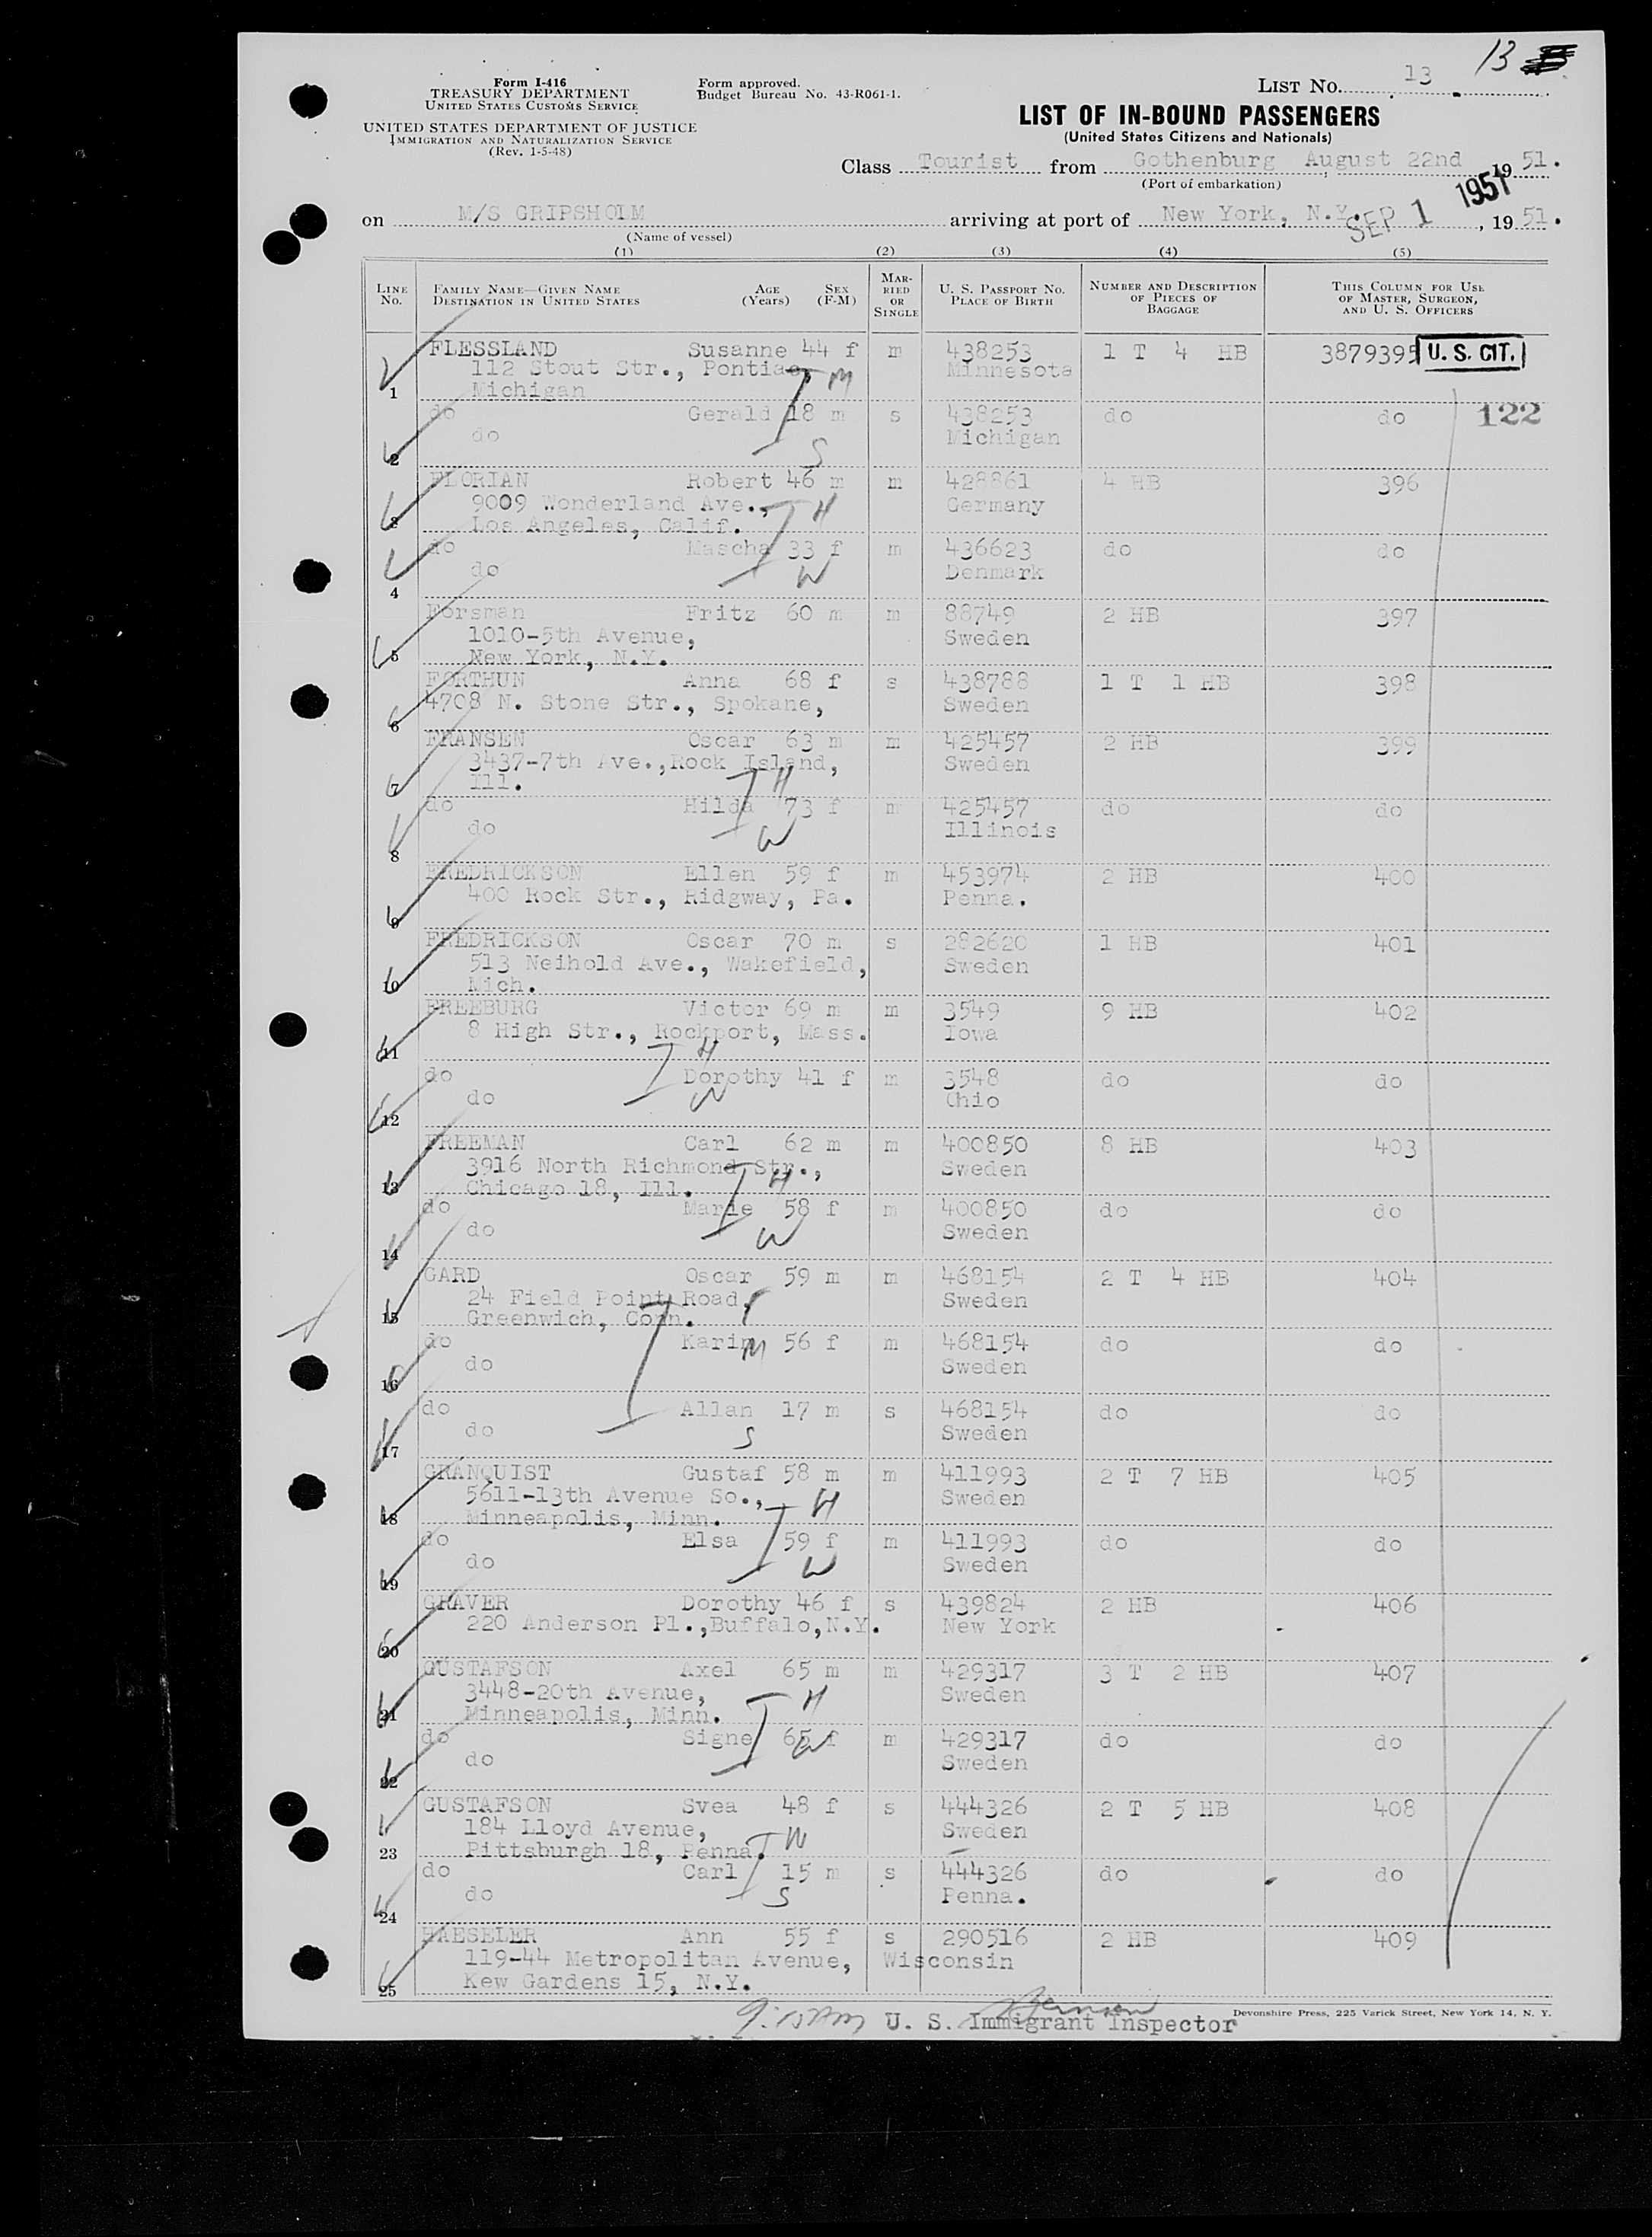 13
Form I-416
TREASURY DEPARTMENT
UNITED STATES CUSTOMS SERVICE
Form approved.
Budget Bureau No. 43-R061-1.
LIST No. 13
UNITED STATES DEPARTMENT OF JUSTICE
IMMIGRATION AND NATURALIZATION SERVICE
(Rev. 1-5-48)
LIST OF IN-BOUND PASSENGERS
(United States Citizens and Nationals)
Class Tourist from Gothenburg August 22nd 1951.
(Port of embarkation)
on M/S GRIPSHOLM arriving at port of New York, N.Y. , 1951.
SEP 1 1951
(Name of vessel)
(1) (2) (3) (4) (5)
LINE No. FAMILY NAME—GIVEN NAME DESTINATION IN UNITED STATES AGE (Years) SEX (F-M) MARRIED OR SINGLE U. S. PASSPORT NO. PLACE OF BIRTH NUMBER AND DESCRIPTION OF PIECES OF BAGGAGE THIS COLUMN FOR USE OF MASTER, SURGEON, AND U. S. OFFICERS
FLESSLAND Susanne 44 f m 438253 1 T 4 HB 3879395 U. S. CIT.
112 Stout Str., Pontiac, M Minnesota
1 Michigan
do Gerald 18 m s 438253 do do 122
do Michigan
2 S
FLORIAN Robert 46 m m 428861 4 HB 396
9009 Wonderland Ave., H Germany
3 Los Angeles, Calif.
do Mascha 33 f m 436623 do do
do W Denmark
4
Forsman Fritz 60 m m 88749 2 HB 397
1010-5th Avenue, Sweden
5 New York, N.Y.
FORTHUN Anna 68 f s 438788 1 T 1 HB 398
4708 N. Stone Str., Spokane, Sweden
6
FRANSEN Oscar 63 m m 425457 2 HB 399
3437-7th Ave.,Rock Island, Sweden
7 Ill. H
do Hilda 73 f m 425457 do do
do W Illinois
8
FREDRICKSON Ellen 59 f m 453974 2 HB 400
400 Rock Str., Ridgway, Pa. Penna.
9
FREDRICKSON Oscar 70 m s 282620 1 HB 401
513 Neihold Ave., Wakefield, Sweden
10 Mich.
FREEBURG Victor 69 m m 3549 9 HB 402
8 High Str., Rockport, Mass. Iowa
11 H
do Dorothy 41 f m 3548 do do
do W Ohio
12
FREEMAN Carl 62 m m 400850 8 HB 403
3916 North Richmond Str., Sweden
13 Chicago 18, Ill. H
do Marie 58 f m 400850 do do
do W Sweden
14
GARD Oscar 59 m m 468154 2 T 4 HB 404
24 Field Point Road, Sweden
15 Greenwich, Conn.
do Karin M 56 f m 468154 do do
do Sweden
16
do Allan 17 m s 468154 do do
do S Sweden
17
GRANQUIST Gustaf 58 m m 411993 2 T 7 HB 405
5611-13th Avenue So., H Sweden
18 Minneapolis, Minn.
do Elsa 59 f m 411993 do do
do W Sweden
19
GRAVER Dorothy 46 f s 439824 2 HB 406
220 Anderson Pl.,Buffalo,N.Y. New York
20
GUSTAFSON Axel 65 m m 429317 3 T 2 HB 407
3448-20th Avenue, H Sweden
21 Minneapolis, Minn.
do Signe 65 f m 429317 do do
do W Sweden
22
GUSTAFSON Svea 48 f s 444326 2 T 5 HB 408
184 Lloyd Avenue, Sweden
23 Pittsburgh 18, Penna.
do Carl 15 m s 444326 do do
do S Penna.
24
HAESELER Ann 55 f s 290516 2 HB 409
119-44 Metropolitan Avenue, Wisconsin
25 Kew Gardens 15, N.Y.
U. S. Immigrant Inspector
Devonshire Press, 225 Varick Street, New York 14, N. Y.